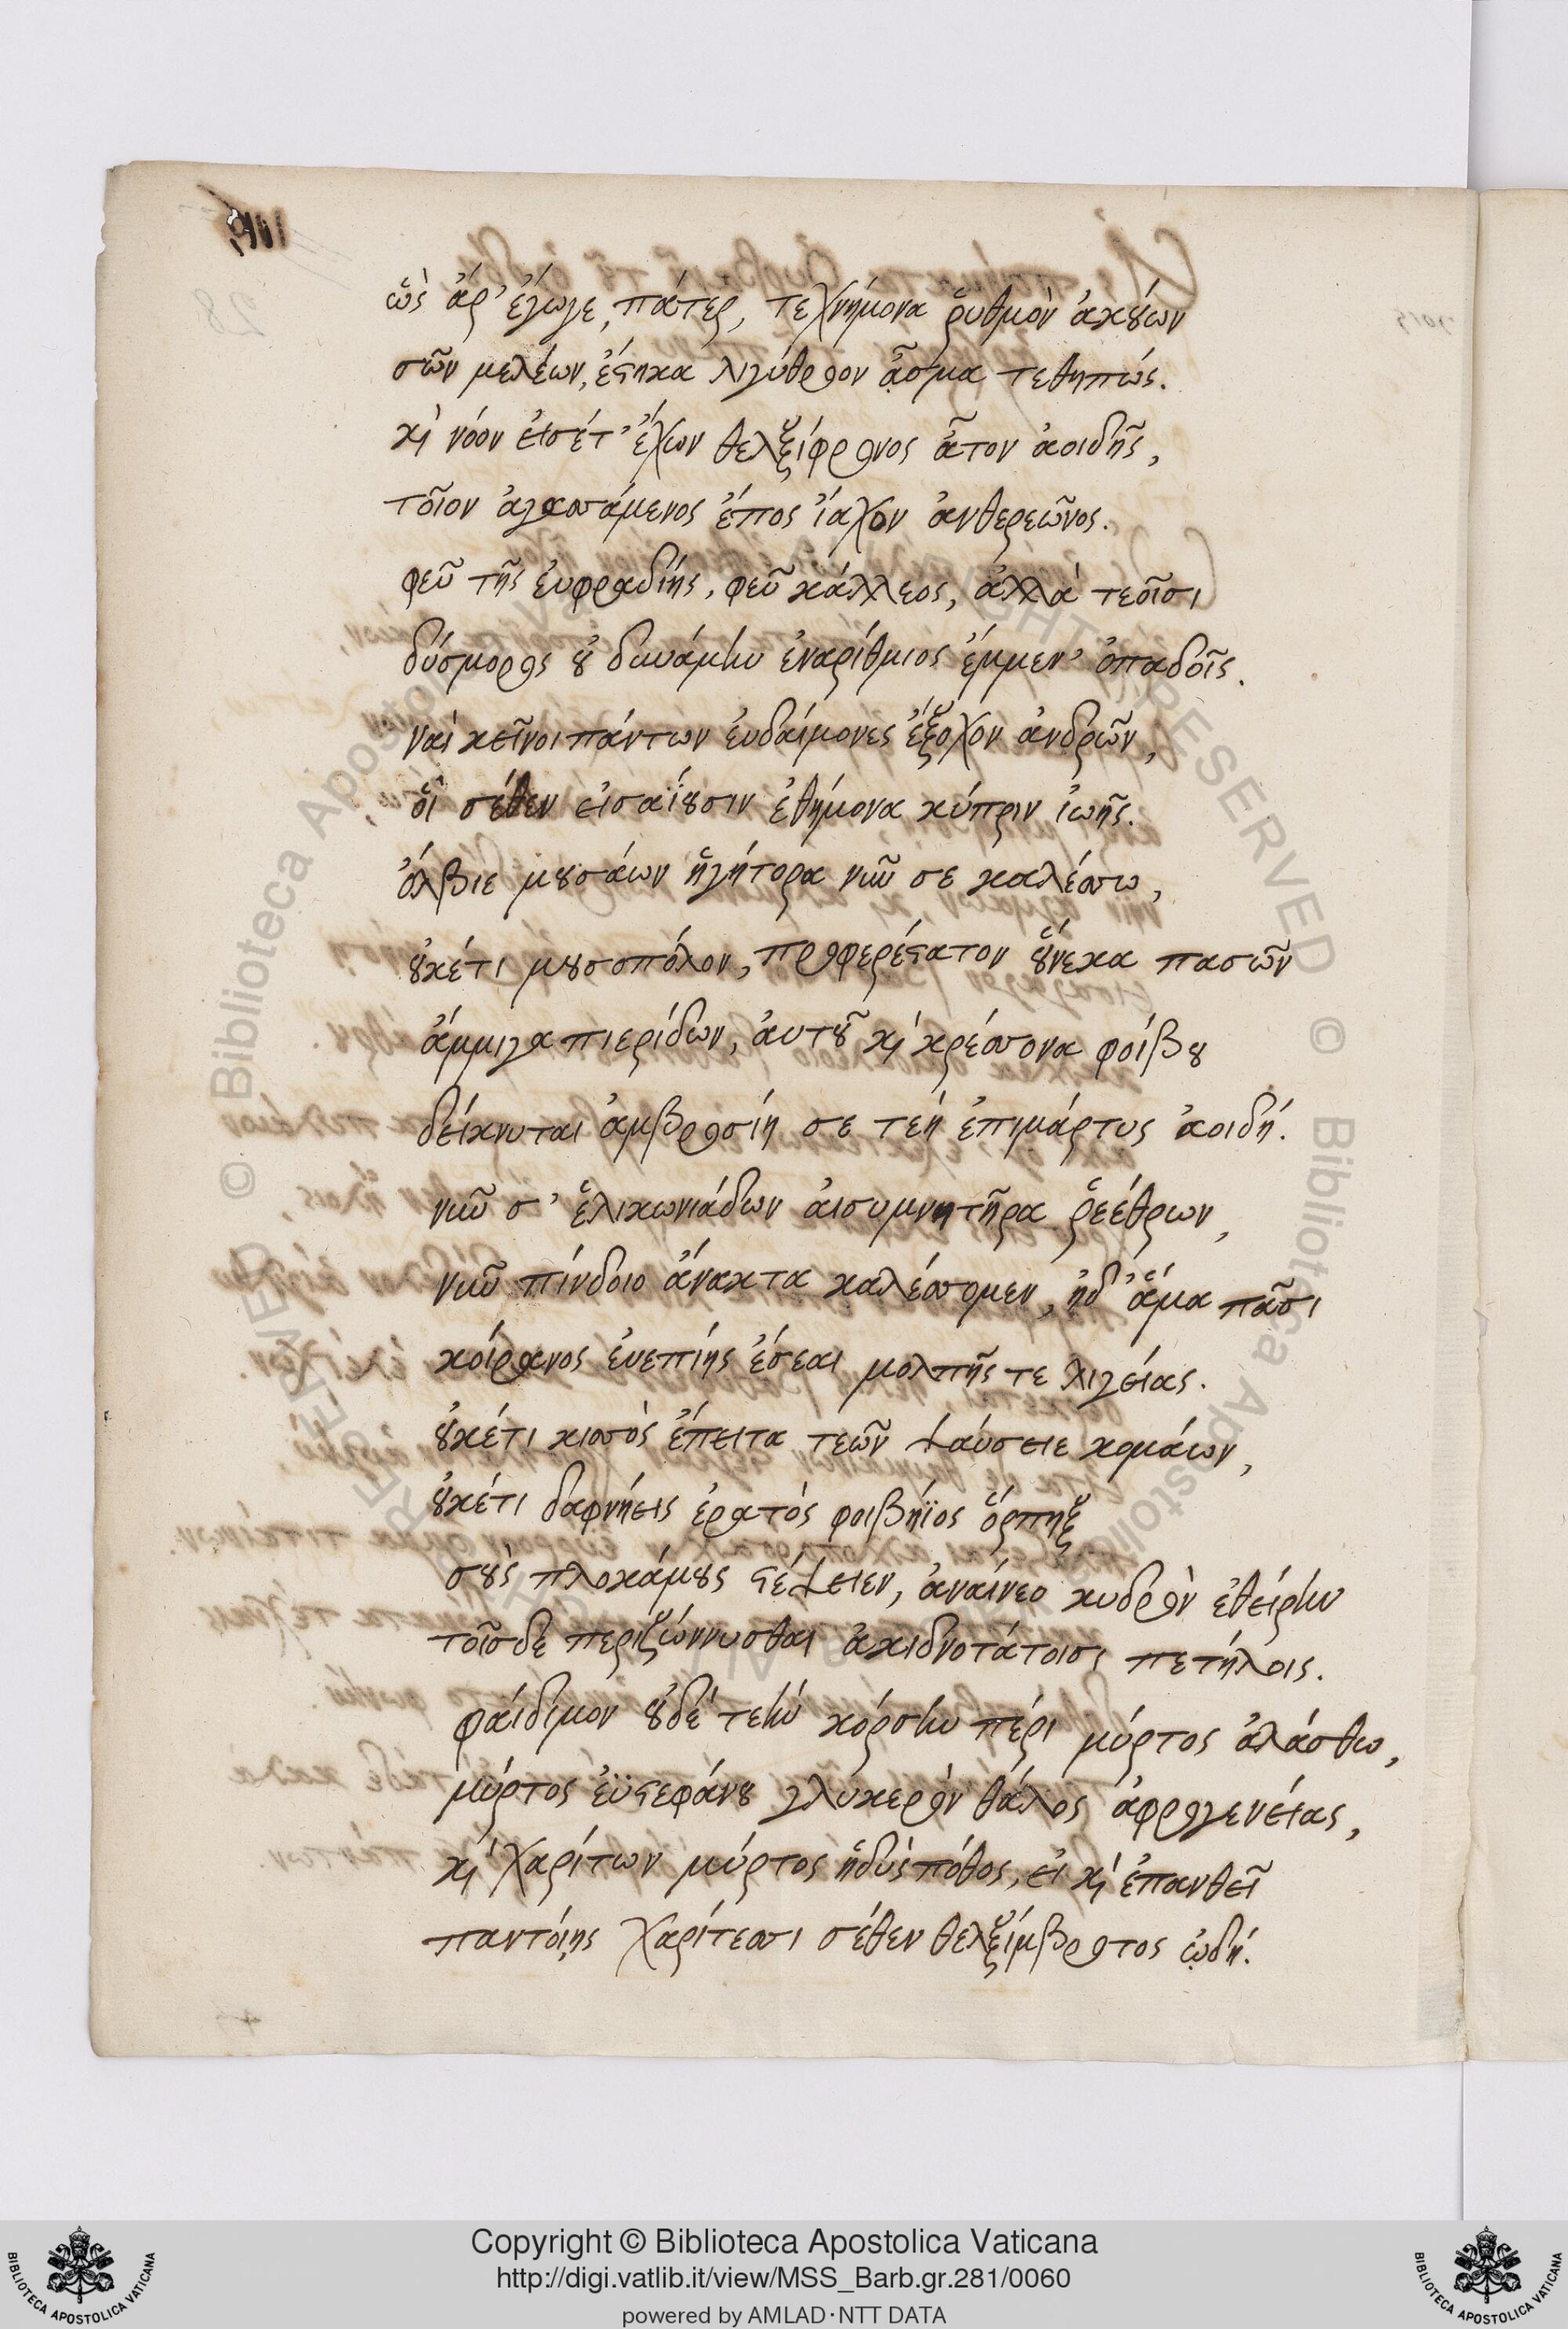 ὣς ἄρ' ἔγωγε, πάτερ, τεχνήμονα ῥυθμὸν ἀκούων
σῶν μελέων, ἕστηκα λιγύθροον ᾆσμα τεθηπώς.
καὶ νόον εἰσέτ' ἔχων θελξίφρονος ἆτον ἀοιδῆς,
τοῖον ἀγασσάμενος ἔπος ἴαχον ἀνθερεῶνος.
φεῦ τῆς εὐφραδίης, φεῦ κάλλεος, ἀλλὰ τεοῖσι
δύσμορος οὐ δυνάμην ἐναρίθμιος ἔμμεν' ὀπαδοῖς.
ναὶ κεῖνοι πάντων εὐδαίμονες ἔξοχον ἀνδρῶν,
οἳ σέθεν εἰσαΐουσιν ἐθήμονα κύπριν ἰωῆς.
ὄλβιε μουσάων ἡγήτορα νῦν σε καλέσσω,
οὐκέτι μουσοπόλον, προφερέστατον οὕνεκα πασῶν
ἄμμιγα πιερίδων, αὐτοῦ καὶ κρέσσονα φοίβου
δείκνυται ἀμβροσίη σε τεὴ ἐπιμάρτυς ἀοιδή.
νῦν σ' ἑλικωνιάδων αἰσυμνητῆρα ῥεέθρων,
νῦν πίνδοιο ἄνακτα καλέσσομεν, ἠδ' ἅμα πᾶσι
κοίρανος εὐεπίης ἔσεαι μολπῆς τε λιγείας.
οὐκέτι κισσὸς ἔπειτα τεῶν ψαύσειε κομάων,
οὐκέτι δαφνήεις ἐρατὸς φοιβήϊος ὅρπηξ
σοὺς πλοκάμους στέψειεν, ἀναίνεο κυδρὸν ἐθείρην
τοῖσδε περιζώννυσθαι ἀκιδνοτάτοισι πετήλοις.
φαίδιμον οὐδὲ τεὴν κόρσην πέρι μύρτος ἀλάσθω,
μύρτος ἐϋστεφάνου γλυκερὸν θάλος ἀφρογενείας,
καὶ Χαρίτων μύρτος ἡδὺς πόθος, εἰ καὶ ἐπανθεῖ
παντοίῃς Χαρίτεσσι σέθεν θελξίμβροτος ᾠδή.
Copyright © Biblioteca Apostolica Vaticana
http://digi.vatlib.it/view/MSS_Barb.gr.281/0060
powered by AMLAD·NTT DATA